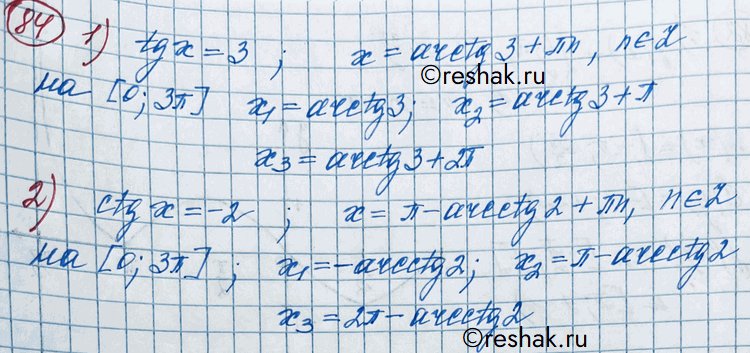 84 1) tg x = 3 ; x = arctg 3 + πn, n∈Z
©reshak.ru
на [0; 3π] x₁ = arctg 3; x₂ = arctg 3 + π
x₃ = arctg 3 + 2π
2) ctg x = -2 ; x = π - arcctg 2 + πn, n∈Z
на [0; 3π] ; x₁ = -arcctg 2; x₂ = π - arcctg 2
x₃ = 2π - arcctg 2
©reshak.ru